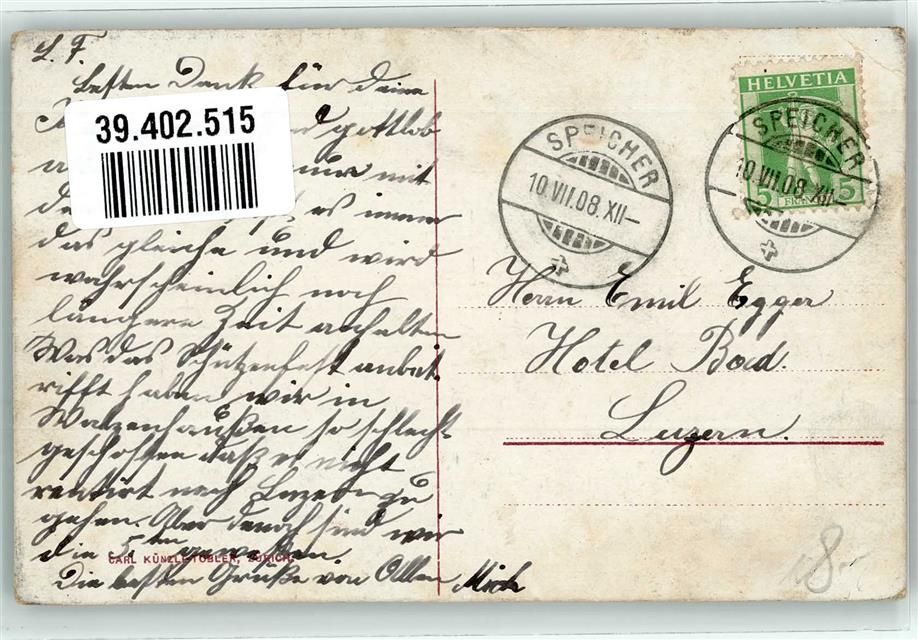 L. F.
Besten Dank für deine
gottlob
nur mit
es immer
das gleiche und wird
wahrscheinlich noch
längere Zeit anhalten
Was das Schützenfest anbet.
rifft haben wir in
Walzenhaußen so schlecht
geschossen daß es nicht
rentirt nach Luzern zu
gehen. Aber danach sind wir
die 5ten gewesen.
Die besten Grüße von Allen
39.402.515
CARL KÜNZLI-TOBLER, ZÜRICH.
HELVETIA
5 FRANCO 5
SPEICHER
10.VII.08.XII-
SPEICHER
10.VII.08.XII-
Herrn Emil Egger
Hotel Bad.
Luzern.